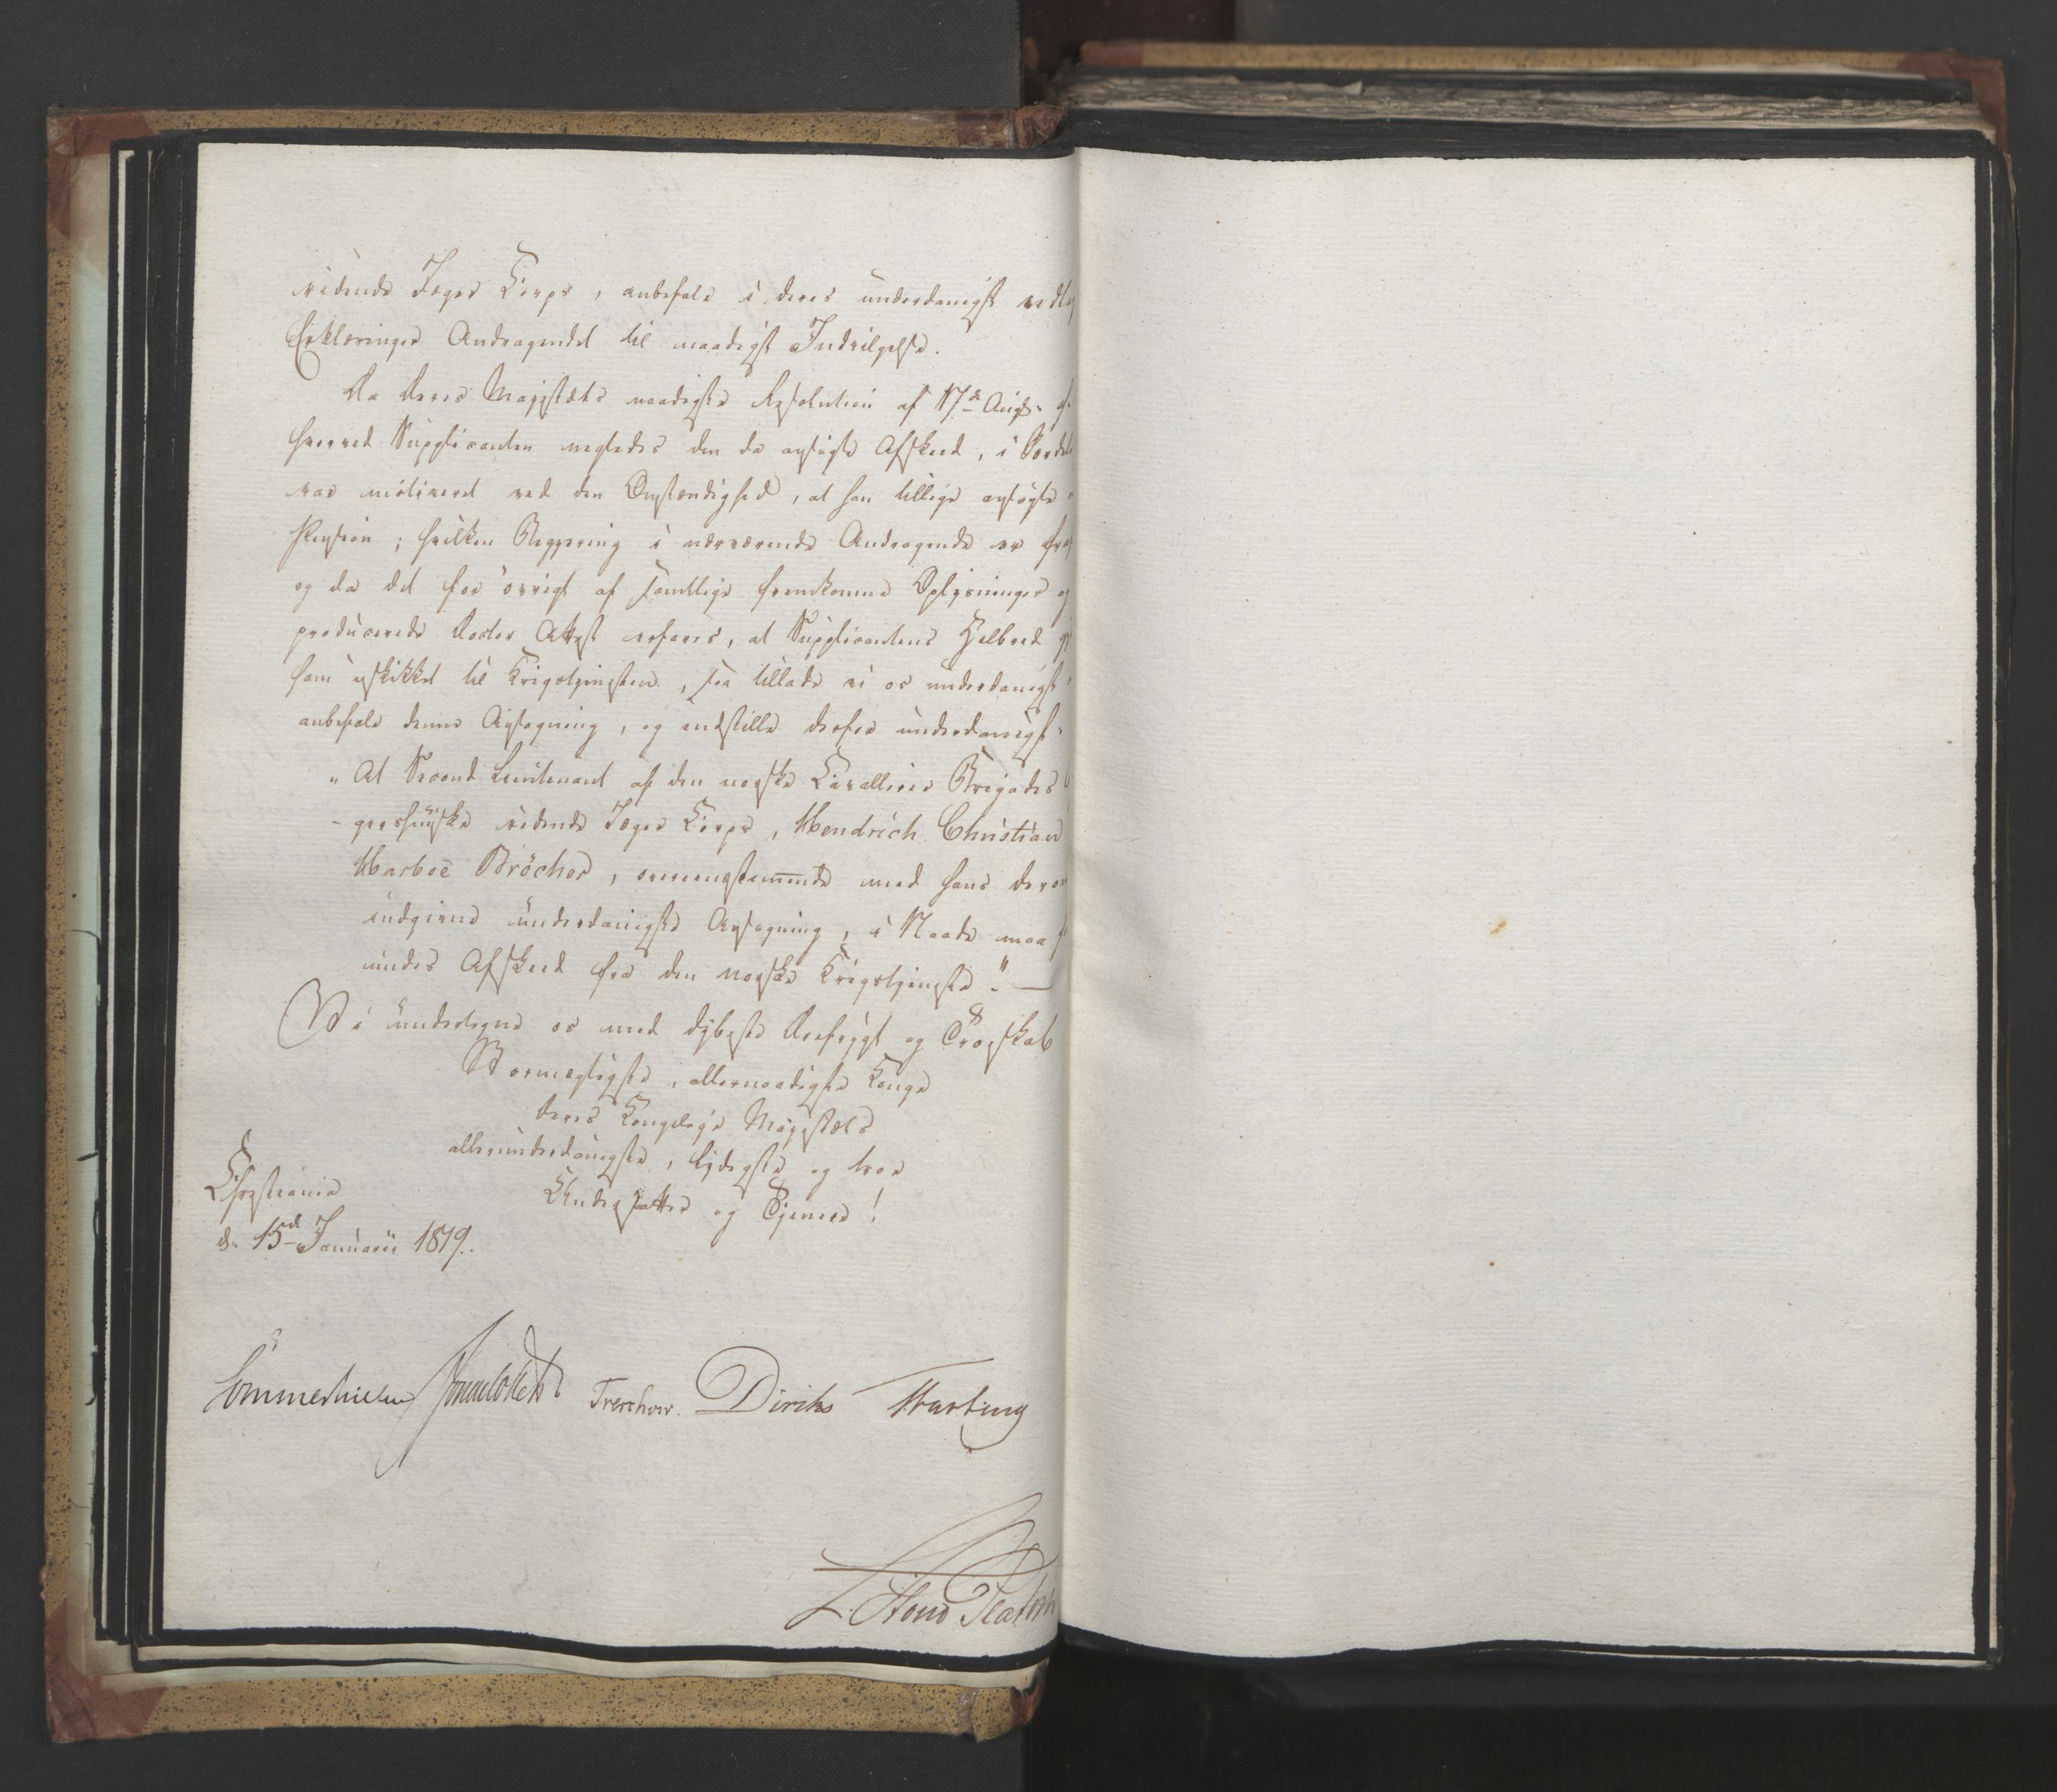 ridende Jæger Corps, anbefale i deres underdanigst vedlag
Erklæringer Andragendet til naadigst Indvilgelse.
Da Deres Majestæts naadigste Resolution af 17de Augst.
hvorved Supplicanten negtedes den da ansøgte Afskeed, i
var motiveret ved den Omstændighed, at han tillige ansøgte
Pension; hvilken Begjæring i nærværende Andragende er
og da det for øvrigt af samtlige fremkomne Oplysninger og
producerede Doctor Attest erfares, at Supplicantens Helbred
ham uskikket til Krigstjenesten, saa tillade vi os underdanigst
anbefale denne Ansøgning, og indstille derfor underdanigst:
"At Second Lieutenant af den norske Cavallerie Brigades
gershuusske ridende Jæger Corps, Hendrich Christian
Harboe Bröcher, overeensstemmende med hans derom
indgivne underdanigste Ansøgning, i Naade maa
undes Afskeed fra den norske Krigstjeneste." —
Vi undertegne os med dybeste Ærefrygt og Troskab
Stormægtigste, allernaadigste Konge
Deres Kongelige Majestæts
allerunderdanigste, lydigste og troe
Undersaatter og Tjenere!
Christiania
d. 15de Januarii 1819.
Sommerhielm Treschow. Diriks Hasting
L. Stoud Platou